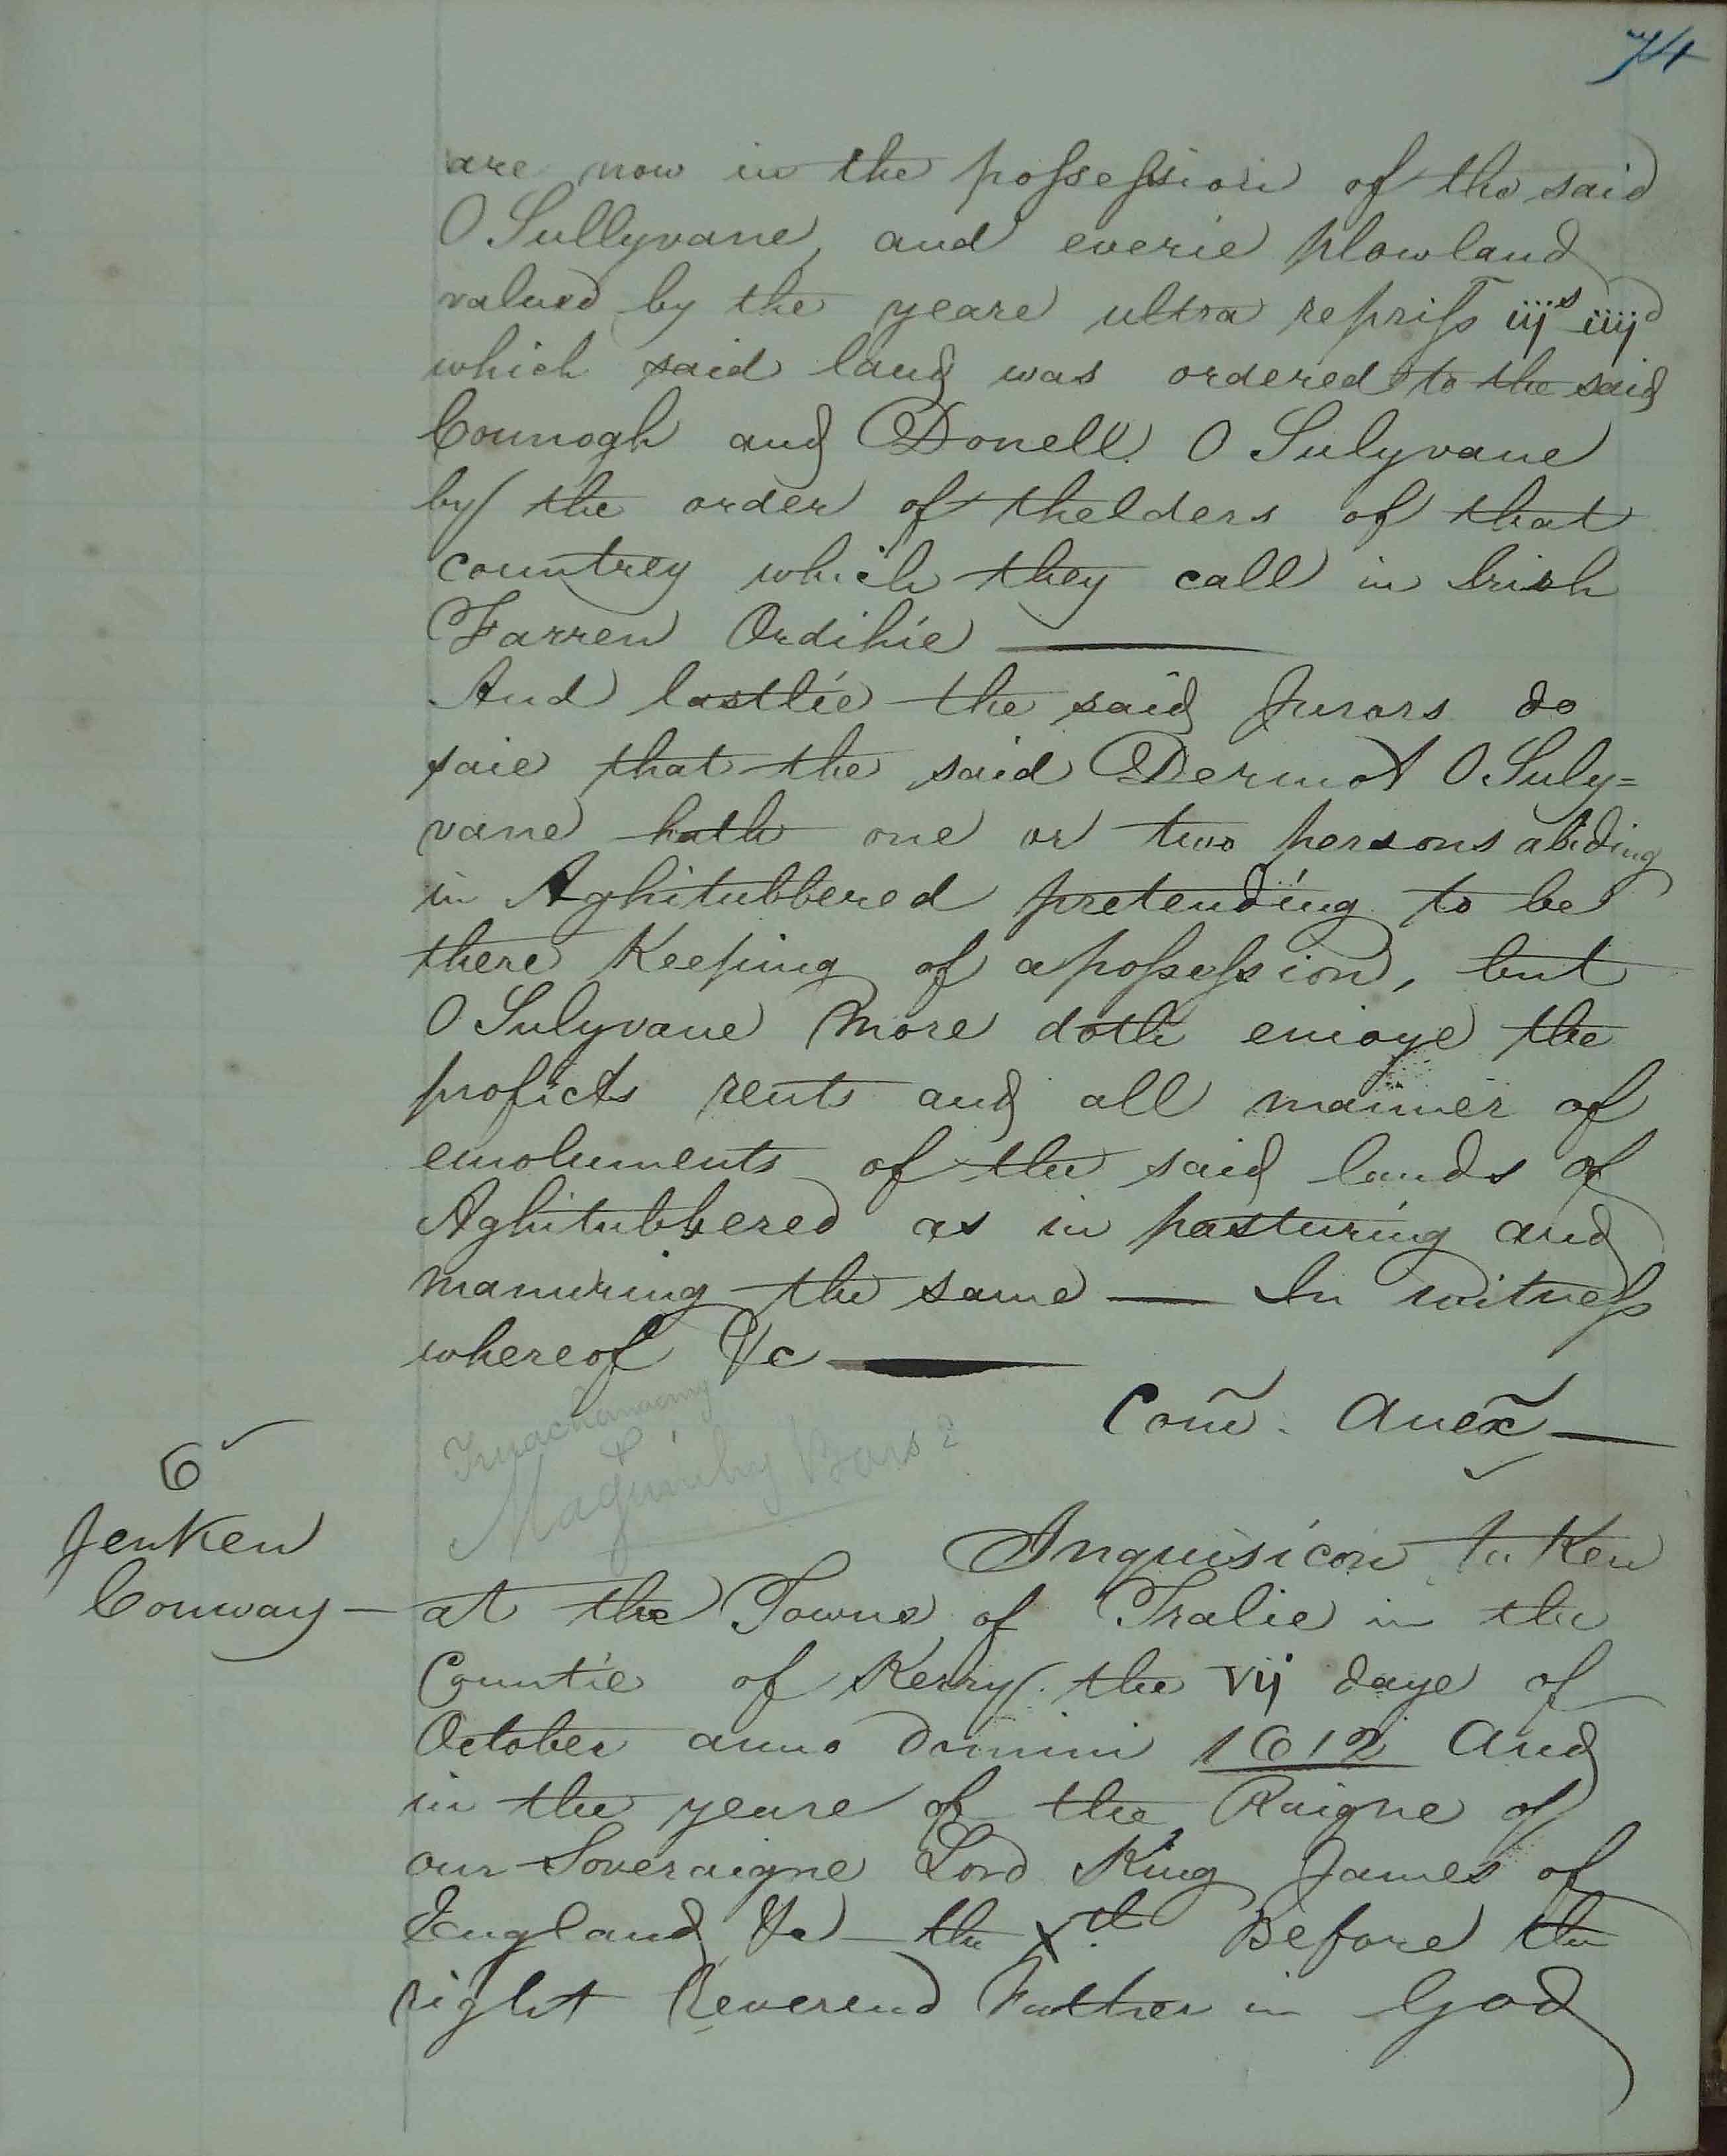 74
are now in the possession of the said
O Sullyvane, and everie plowland
valued by the yeare ultra repriss iijs iiijd
which said land was ordered to the said
Connogh and Donell O Sulyvane
by the order of thelders of that
countrey which they call in Irish
Farren Ordihie
And lastlie the said Jurors do
saie that the said Dermot O Suly=
vane hath one or two persons abiding
in Aghitubbered pretending to be
there Keeping of a possession, but
O Sulyvane More doth enioye the
proficts rents and all manner of
emoluments of the said lands of
Aghitubbered as in pasturing and
manuring the same — In witness
whereof &c
Com̃. Anex̃
&
Magunihy Bars?
6
Jenken
Conway —
Inquisicon taKen
at the Towne of Tralie in the
Countie of Kerry. the vij daye of
October anno Domini 1612 And
in the yeare of the Raigne of
our Soveraigne Lord King James of
England &c the xth Before the
right Reverend Father in God